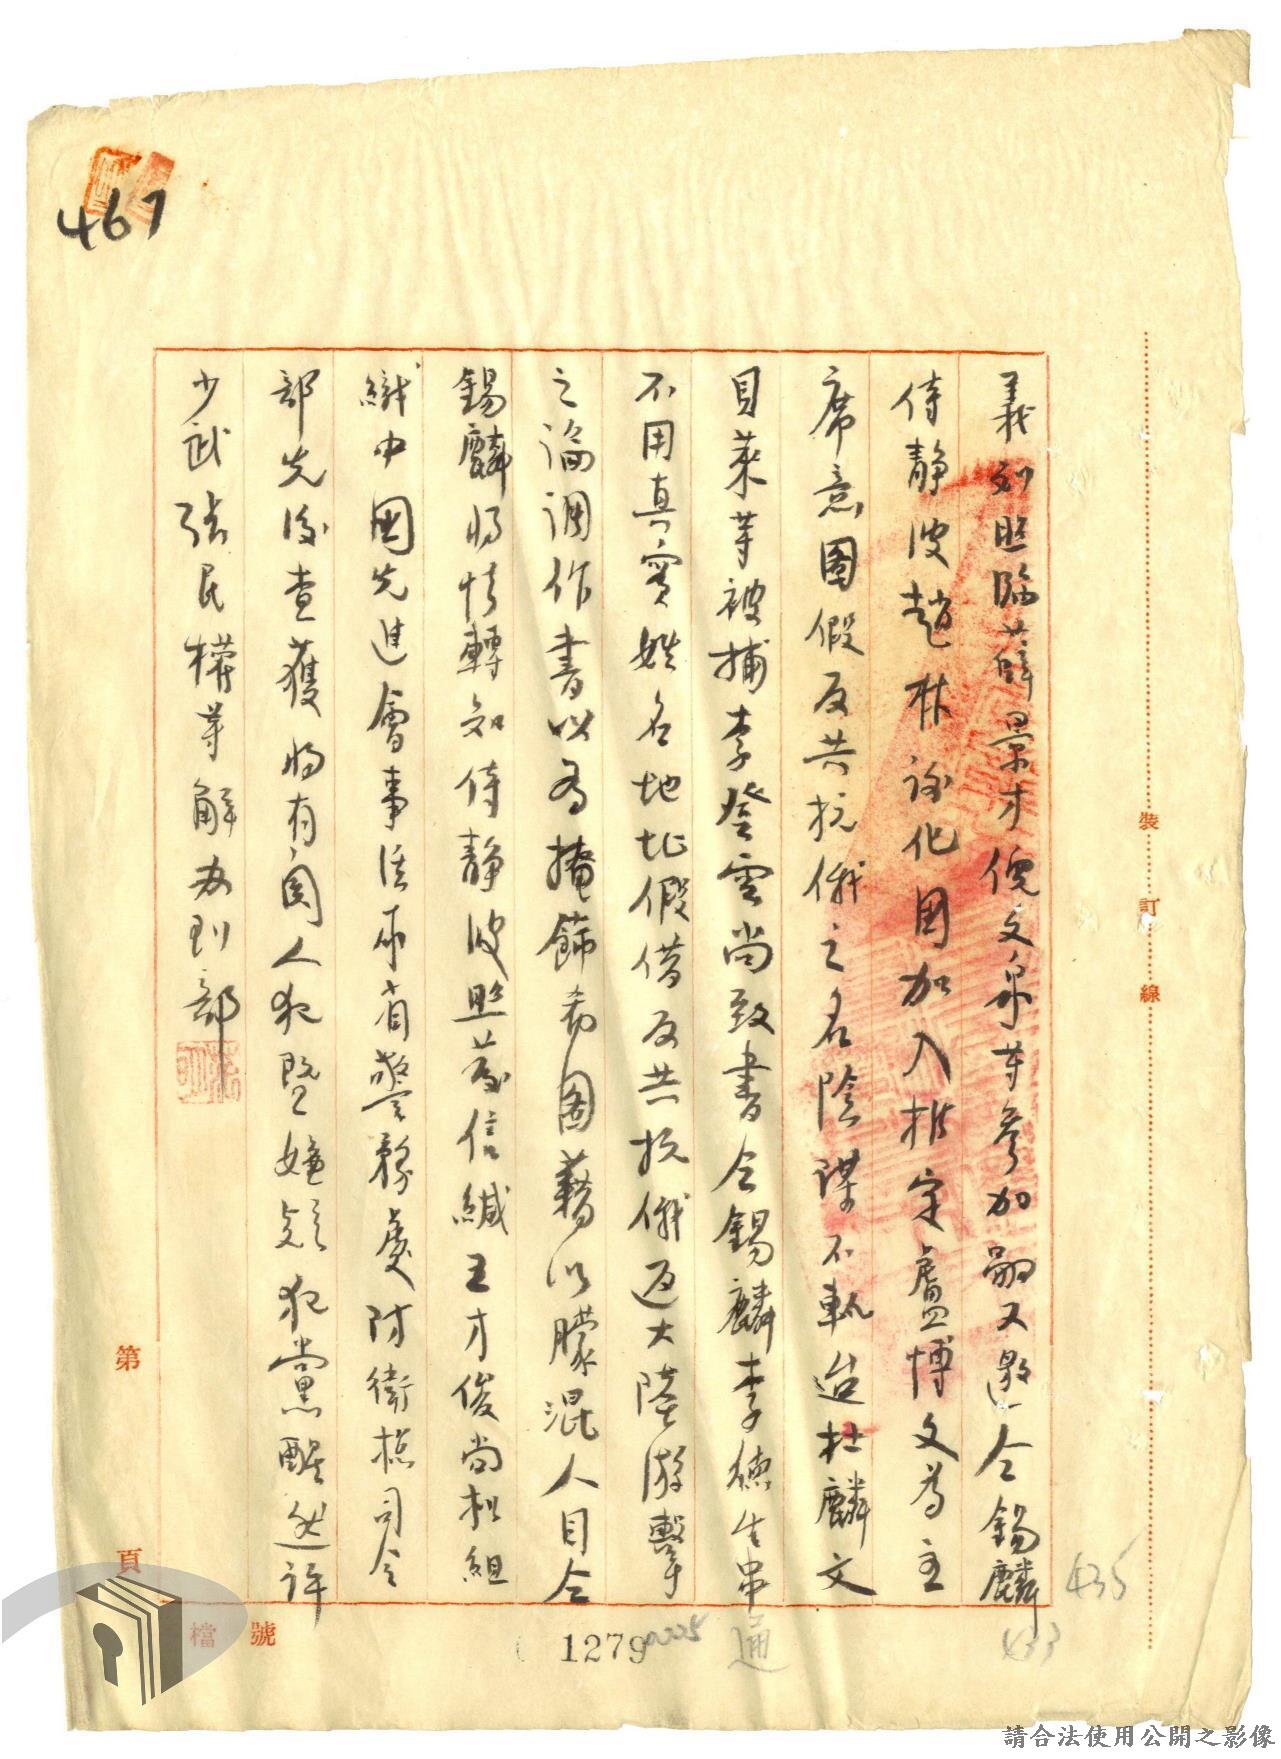 467
義列照臨薛景才倪文泉等參加嗣又邀仝錫麟
侍靜波趙林詒化國加入推定盧博文為主
席意圖假反共抗俄之名陰謀不軌迨杜麟文
貝萊等被捕李登雲尚致書仝錫麟李德生串通
不用真實姓名地址假借反共抗俄返大陸游擊
之論調作書以為掩飾希圖藉以朦混人目仝
錫麟將情轉知侍靜波照發信緘王才俊尚松組
織中國先進會事
本省警務處防衛總司令
部先後查獲將有關人犯暨嫌疑犯黨醒然許
少武張民權等解由到部
裝
訂
線
第
頁
檔號
1279
435
433
請合法使用公開之影像